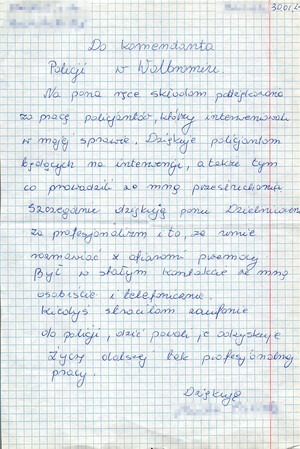 30.01.
Do komendanta
Policji w Wołominie.
Na pana ręce składam podziękowania
za pracę policjantów, którzy interweniowali
w mojej sprawie. Dziękuję policjantom
będących na interwencji, a także tym
co prowadzili ze mną przesłuchania
Szczególnie dziękuję panu Dzielnicowemu
za profesjonalizm i to, że umie
rozmawiać z ofiarami przemocy
Był w stałym kontakcie ze mną
osobiście i telefonicznie.
Kiedyś straciłam zaufanie
do policji, dziś powoli je odzyskuję
Życzę dalszej tak profesjonalnej
pracy.
Dziękuję